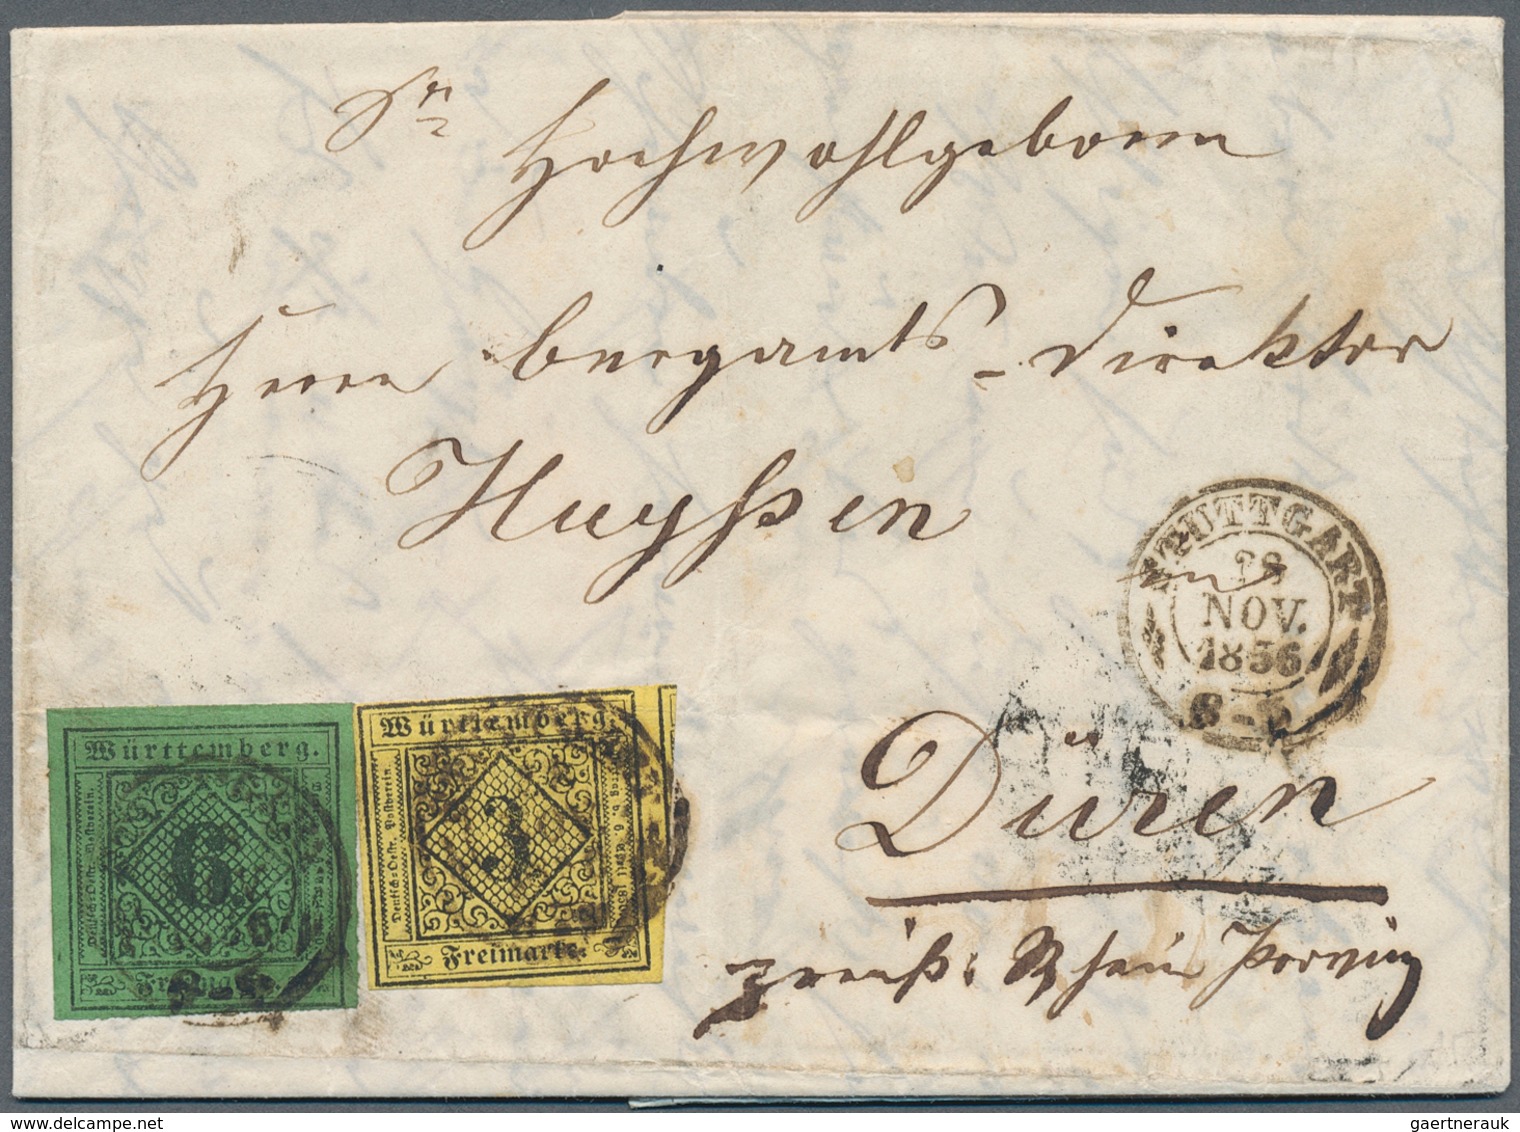 Sr
Hochwohlgeboren
Herrn Bergamts-Direktor
Huyssen
in
STUTTGART
28
NOV.
1856
Düren
preuß: Rhein Provinz
Württemberg.
Deutsch-Oestr. Postverein.
6.
Freimarke.
Württemberg.
Deutsch-Oestr. Postverein.
3
Vertr. v. 6 April 1850.
Freimarke.
gaertnerauk